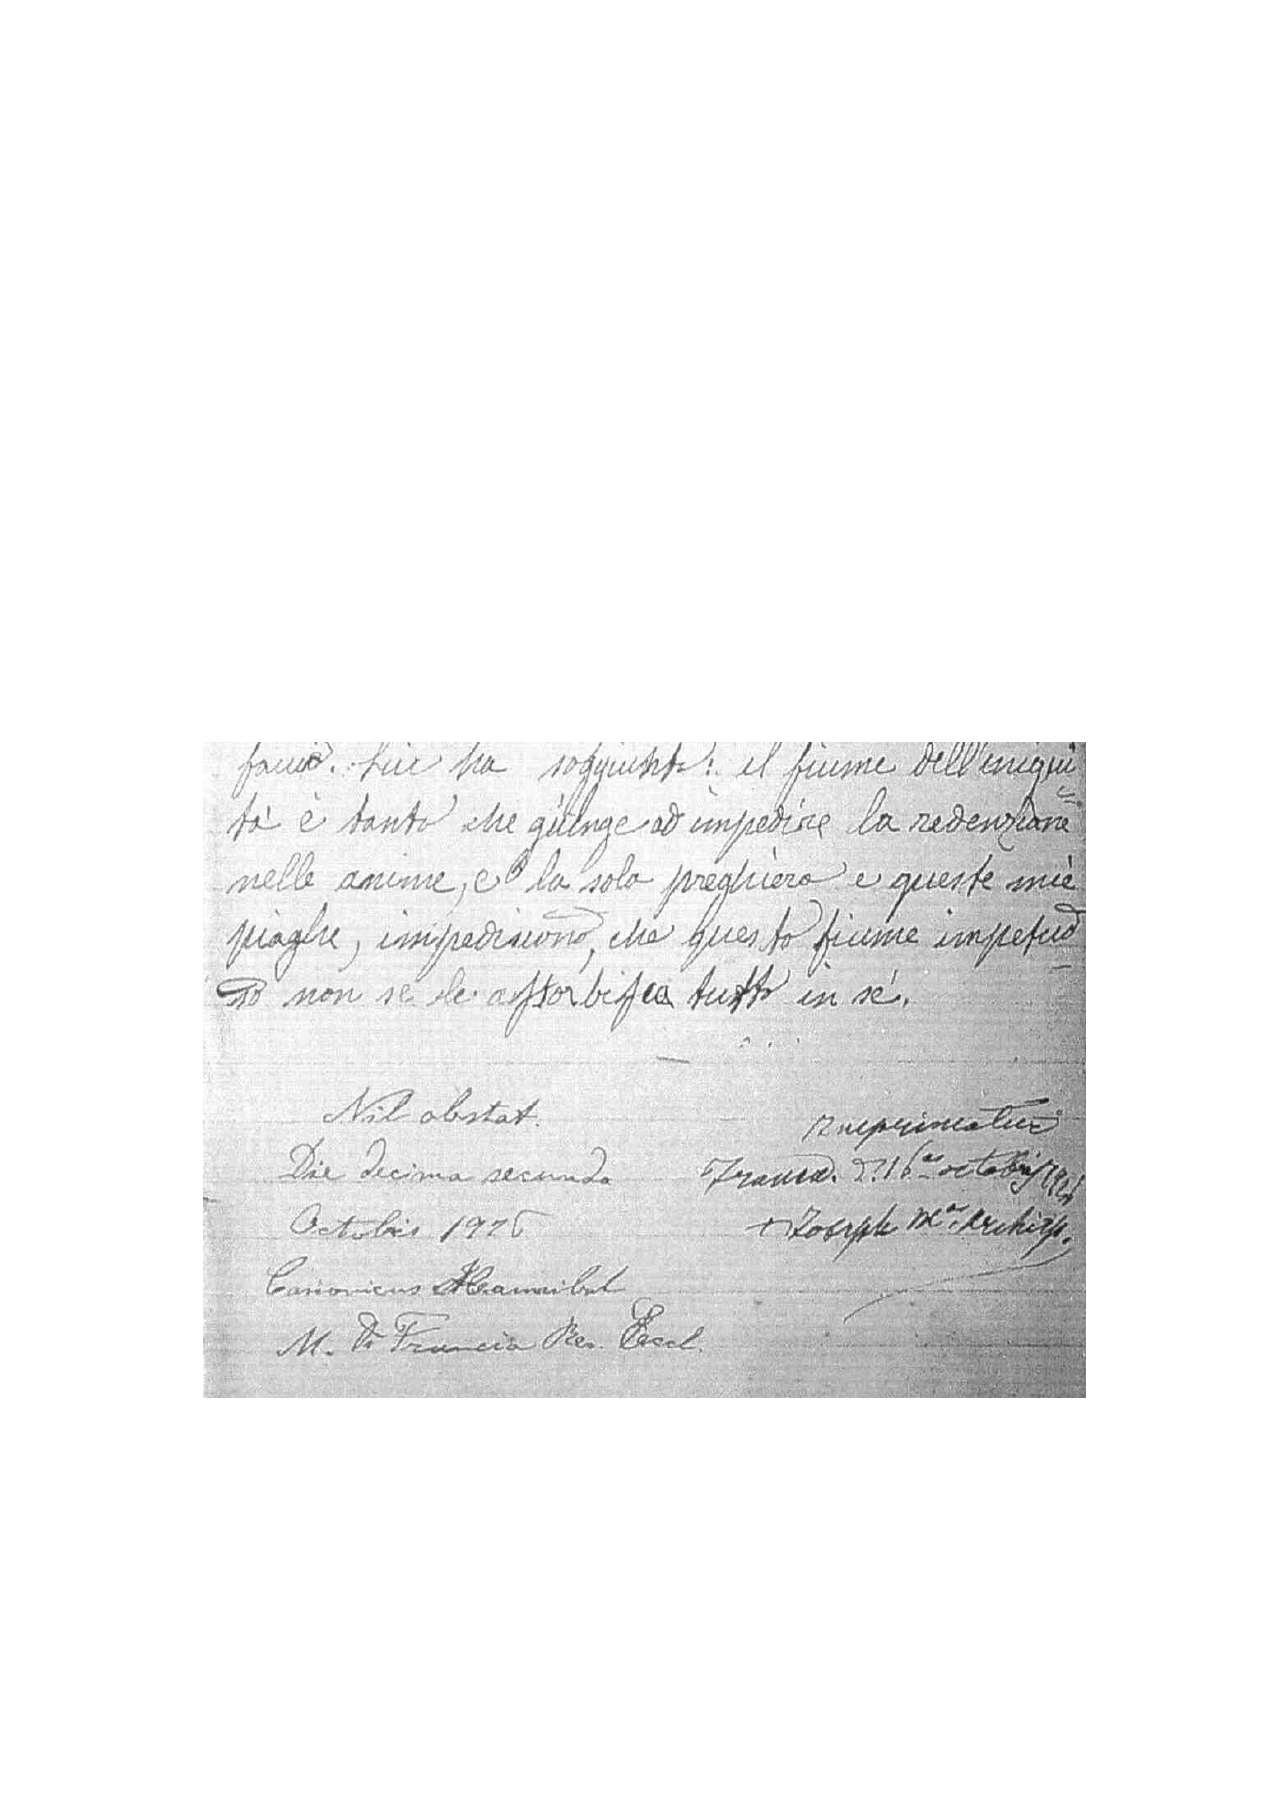 Lui ha soggiunto: il fiume dell'iniqui
tà è tanto che giunge ad impedire la redenzione
nelle anime, e la sola preghiera e queste mie
piaghe, impediscono, che questo fiume impetuo
so non se le assorbisca tutto in sé.
Nil obstat.
Die decima secunda
Octobris 1926
Canonicus Hannibal
M. Di Francia Rev. Eccl.
Imprimatur
16 octobris
+ Joseph M. Archiep.